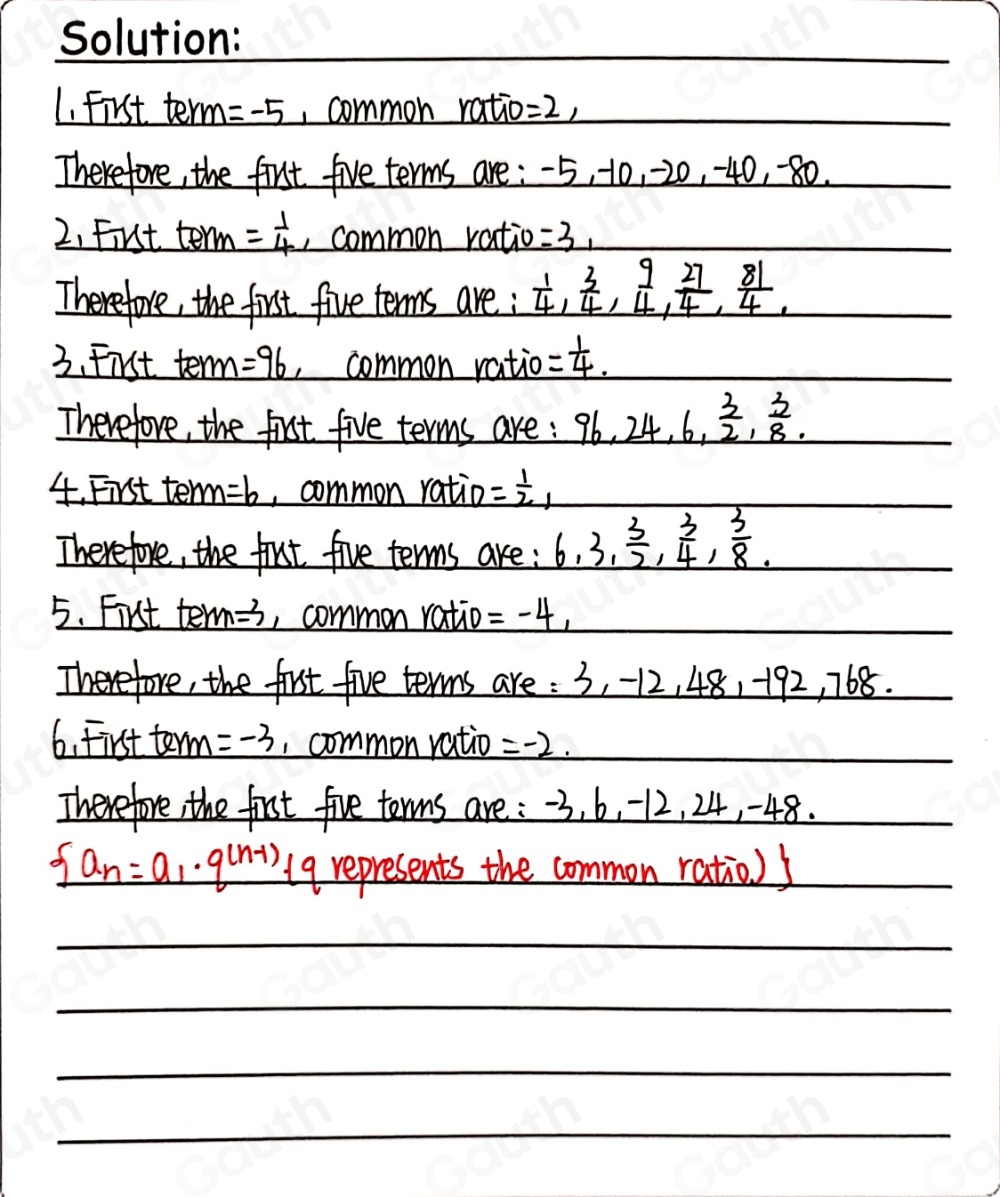 Solution:
1. First term=-5, common ratio=2,
Therefore, the first five terms are: -5,-10,-20,-40,-80.
2, First term = 1/4, common ratio=3,
Therefore, the first five terms are: 1/4, 3/4, 9/4, 27/4, 81/4.
3. First term=96, common ratio=1/4.
Therefore, the first five terms are: 96,24,6,3/2,3/8.
4. First term=6, common ratio=1/2,
Therefore, the first five terms are: 6,3,3/2,3/4,3/8.
5. First term=3, common ratio= -4,
Therefore, the first five terms are: 3,-12,48,-192,768.
6, First term=-3, common ratio =-2.
Therefore, the first five terms are: -3,6,-12,24,-48.
{an=a1·q(n-1) (q represents the common ratio)}